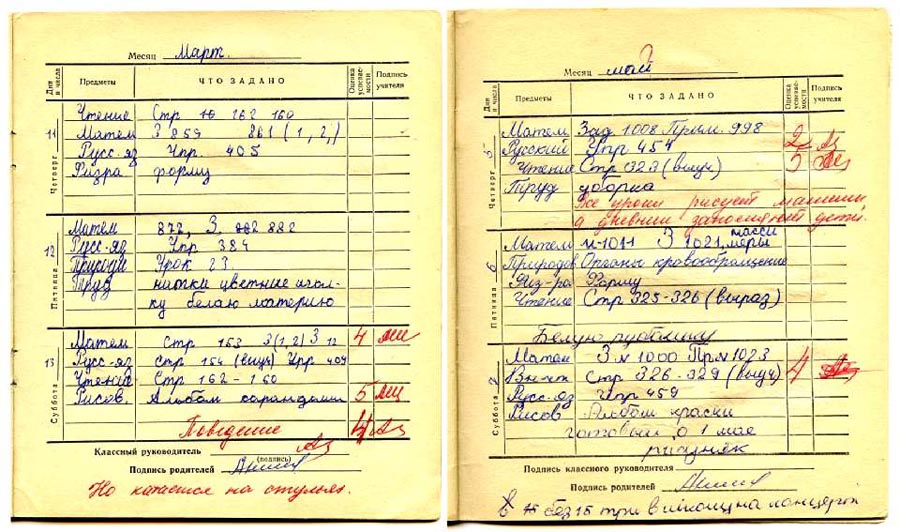 Месяц Март.
Дни и числа Предметы ЧТО ЗАДАНО Оценка успеваемости Подпись учителя
11 Четверг
Чтение Стр 162 160
Матем З 859 861 (1, 2,)
Русс-яз Упр. 405
Физра форму
12 Пятница
Матем 872, З. 882
Русс-яз Упр 384
Природ Урок 23
Труд нитки цветные игол-
ку белаю материю
13 Суббота
Матем Стр 153 З(1,2) З 12 4
Русс-яз Стр 154 (выуч) Упр 409
Чтение Стр 162-160
Рисов. Альбом карандаши 5
Поведение 4
Классный руководитель
(подпись)
Подпись родителей
Но катается на стульях.
Месяц май
Дни и числа Предметы ЧТО ЗАДАНО Оценка успеваемости Подпись учителя
5 Четверг
Матем Зад 1008 Прим. 998 2
Русский Упр 454
Чтение Стр 323 (выуч)
Труд уборка
Все уроки рисует машины
а дневник заполняют дети.
6 Пятница
Матем N-1011 З 1021, меры массы
Природов Органы кровообращение
Физ-ра Форму
Чтение Стр 325-326 (выраз)
Белую рубашку
7 Суббота
Матем З N 1000 Пр N 1023
Вн-чт Стр 326-329 (выуч) 4
Русс-яз Упр 459
Рисов Альбом краски
готовый о 1 мае
рисунок
Подпись классного руководителя
Подпись родителей
без 15 три в на концерт